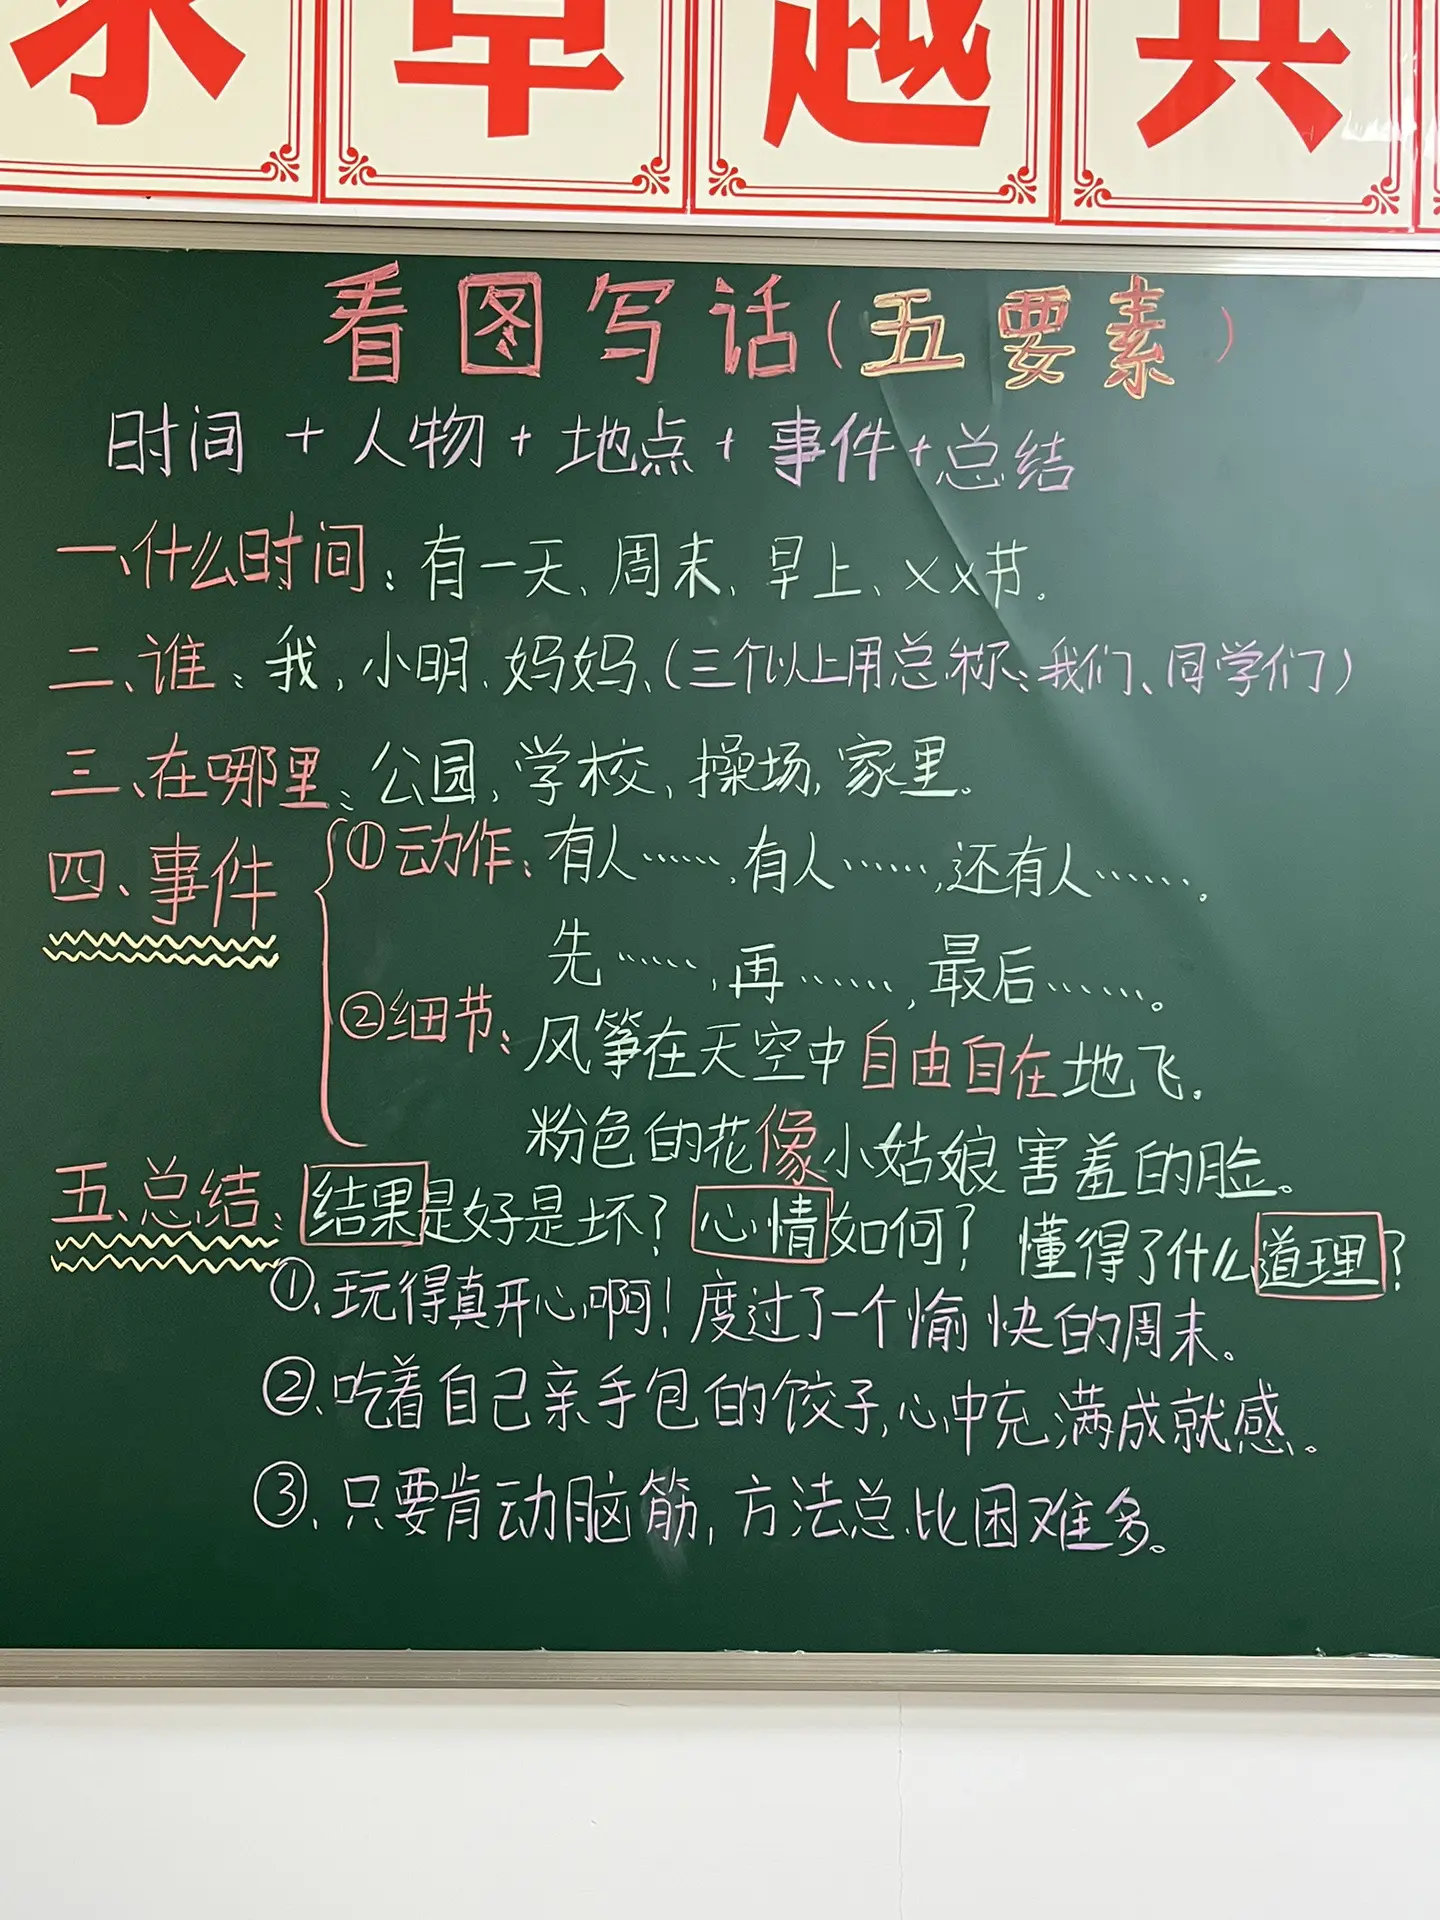 求卓越共
看图写话(五要素)
时间+人物+地点+事件+总结
一、什么时间:有一天、周末、早上、××节。
二、谁:我、小明、妈妈、(三个以上用总称:我们、同学们)
三、在哪里:公园、学校、操场、家里。
四、事件
①动作:有人……,有人……,还有人……。
先……,再……,最后……。
②细节:风筝在天空中自由自在地飞。
粉色的花像小姑娘害羞的脸。
五、总结:结果是好是坏?心情如何?懂得了什么道理?
①、玩得真开心啊!度过了一个愉快的周末。
②、吃着自己亲手包的饺子,心中充满成就感。
③、只要肯动脑筋,方法总比困难多。